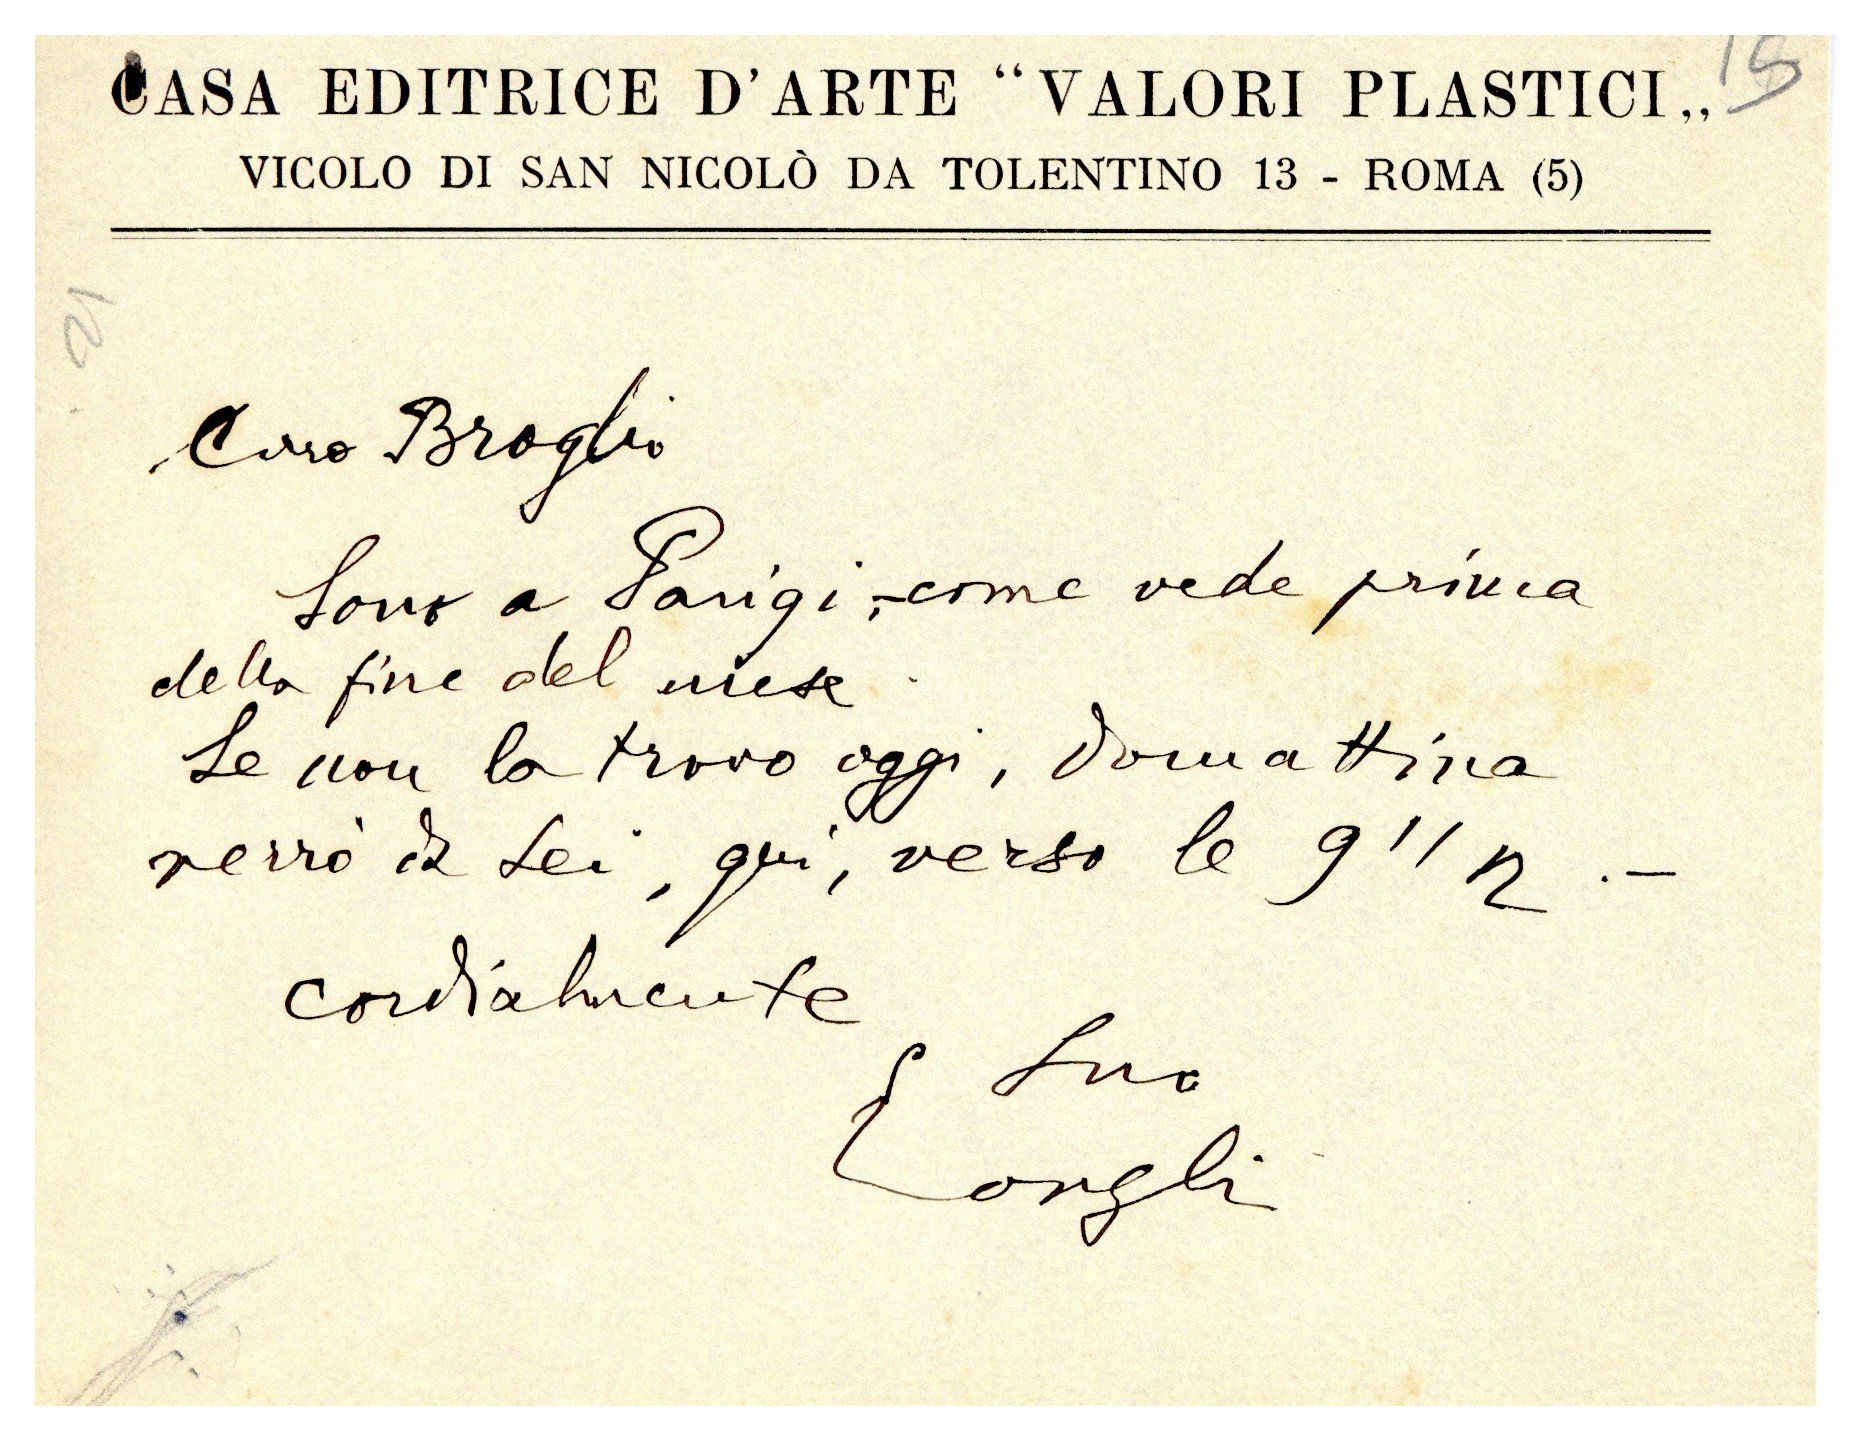 CASA EDITRICE D'ARTE “VALORI PLASTICI„
VICOLO DI SAN NICOLÒ DA TOLENTINO 13 - ROMA (5)
Caro Broglio
Sono a Parigi, come vede prima
della fine del mese.
Se non la trovo oggi, domattina
verrò da Lei, qui, verso le 9 1/2.—
cordialmente
Suo
Longhi